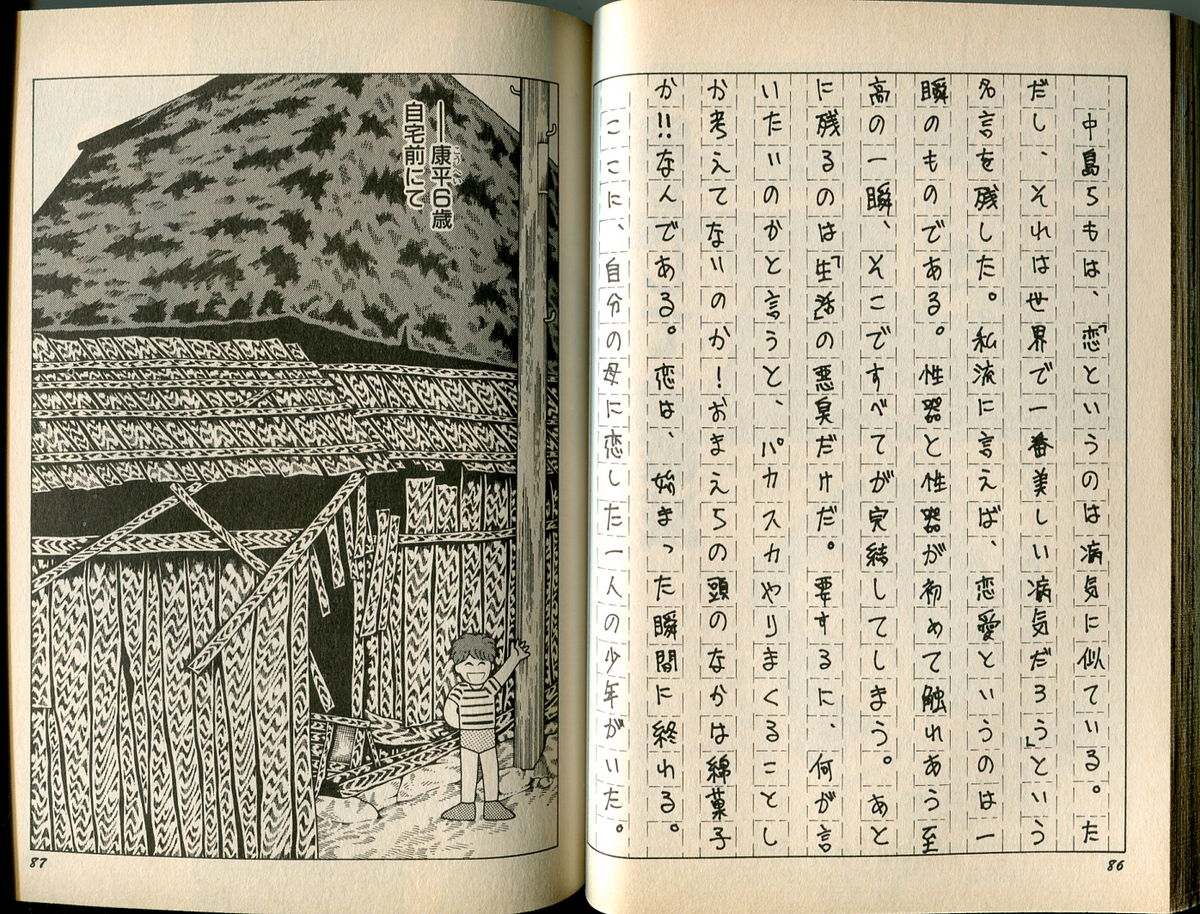 中島らもは、「恋というのは病気に似ている。た
だし、それは世界で一番美しい病気だろう」という
名言を残した。私流に言えば、恋愛というのは一
瞬のものである。性器と性器が初めて触れあう至
高の一瞬、そこですべてが完結してしまう。あと
に残るのは「生活」の悪臭だけだ。要するに、何が言
いたいのかと言うと、パカスカやりまくることし
か考えてないのか！おまえらの頭のなかは綿菓子
か!!なんである。恋は、始まった瞬間に終わる。
ここに、自分の母に恋した一人の少年がいた。
86
──康平6歳
こうへい
自宅前にて
87